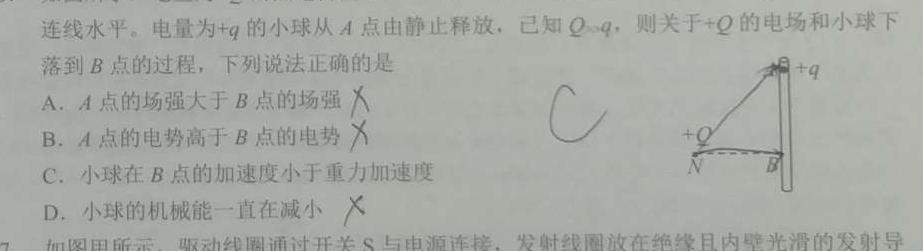 连线水平。电量为+q 的小球从 A 点由静止释放，已知 Q>>q，则关于+Q 的电场和小球下
落到 B 点的过程，下列说法正确的是
A．A 点的场强大于 B 点的场强 X
B．A 点的电势高于 B 点的电势 X
C．小球在 B 点的加速度小于重力加速度
D．小球的机械能一直在减小 X
C
+q
+Q
N
B
7 如图甲所示，驱动线圈通过开关 S 与电源连接，发射线圈放在绝缘且内壁光滑的发射导